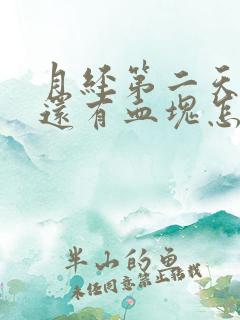 月经第二天
还有血块怎
半山的鱼
未经同意禁止转载